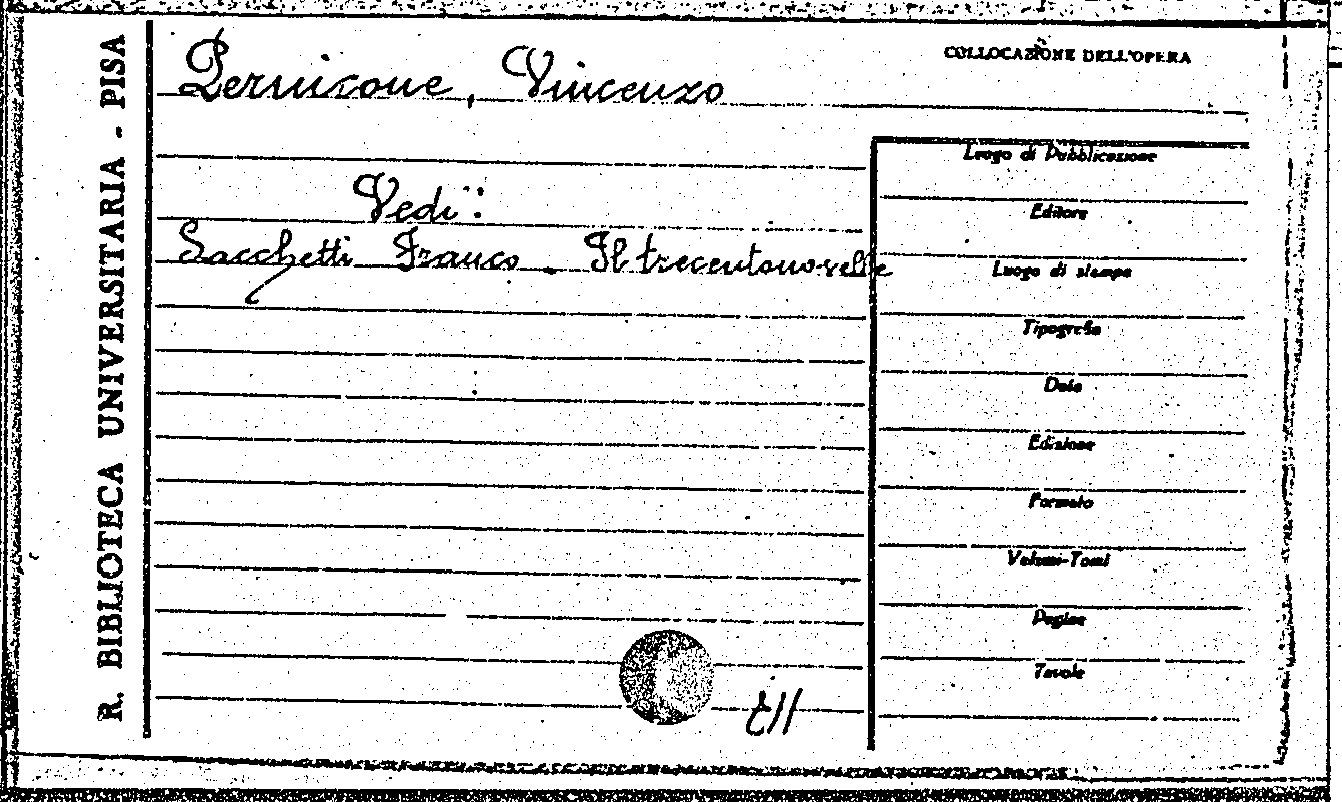 R. BIBLIOTECA UNIVERSITARIA - PISA
Pernicone, Vincenzo
COLLOCAZIONE DELL'OPERA
Vedi:
Sacchetti Franco. Il trecentonovelle
Luogo di Pubblicazione
Editore
Luogo di stampa
Tipografia
Data
Edizione
Formato
Volumi-Tomi
Pagine
Tavole